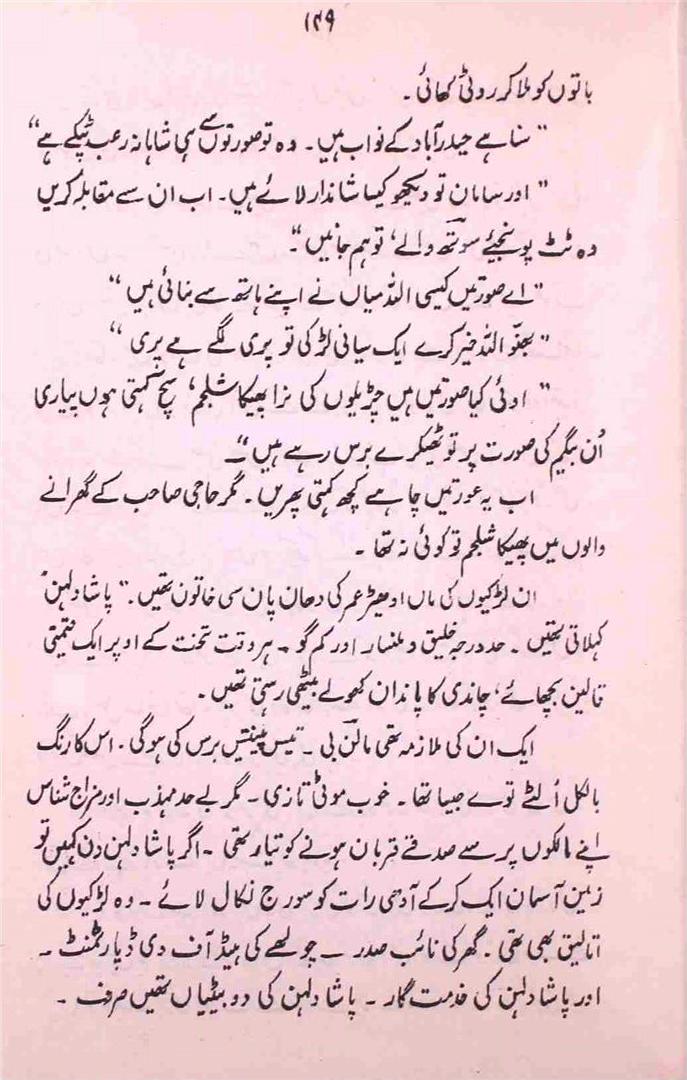 ۱۴۹
باتوں کو ملا کر روٹی کھائی ۔
" سنا ہے حیدرآباد کے نواب ہیں ۔ وہ تو صورتوں سے ہی شاہانہ رعب ٹپکے ہے "
" اور سامان تو دیکھو کیسا شاندار لائے ہیں ۔ اب ان سے مقابلہ کریں
وہ ٹٹ پونجیئے سوتھ والے ، تو ہم جانیں "۔
" اے صورتیں کیسی اللہ میاں نے اپنے ہاتھ سے بنائی ہیں "
" بجنّو اللہ خیر کرے ایک سیانی لڑکی تو پری لگے ہے پری "
" اوئی کیا صورتیں ہیں چڑیلوں کی نرا پھیکا شلجم ، سچ کہتی ہوں پیاری
اُن بیگم کی صورت پر تو ٹھیکرے برس رہے ہیں "۔
اب یہ عورتیں چاہے کچھ کہتی پھریں ۔ مگر حاجی صاحب کے گھرانے
والوں میں پھیکا شلجم تو کوئی نہ تھا ۔
ان لڑکیوں کی ماں ادھیڑ عمر کی دھان پان سی خاتون تھیں ۔ " پاشا دلہن "
کہلاتی تھیں ۔ حد درجہ خلیق و ملنسار اور کم گو ۔ ہر وقت تخت کے اوپر ایک قیمتی
قالین بچھائے ، چاندی کا پاندان کھولے بیٹھی رہتی تھیں ۔
ایک ان کی ملازمہ تھی مالن بی ۔ تیس پینتیس برس کی ہوگی ۔ اس کا رنگ
بالکل اُلٹے توے جیسا تھا ۔ خوب موٹی تازی ۔ مگر بے حد مہذب اور مزاج شناس
اپنے مالکوں پر سے صدقے قربان ہونے کو تیار تھی ۔ اگر پاشا دلہن دن کہیں تو
زمین آسمان ایک کر کے آدھی رات کو سورج نکال لائے ۔ وہ لڑکیوں کی
اتالیق بھی تھی ۔ گھر کی نائب صدر ۔ چولھے کی ہیڈ آف دی ڈپارٹمنٹ ۔
اور پاشا دلہن کی خدمت گار ۔ پاشا دلہن کی دو بیٹیاں تھیں صرف ۔